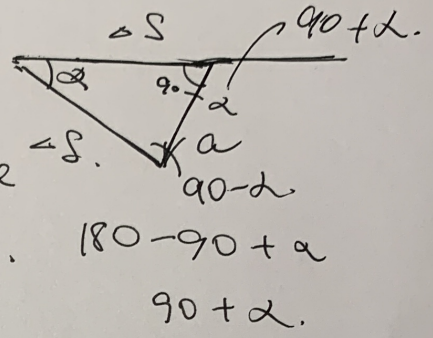 △S
90+α.
α
90-α
△S.
a
2
90-α.
180-90+α
90+α.